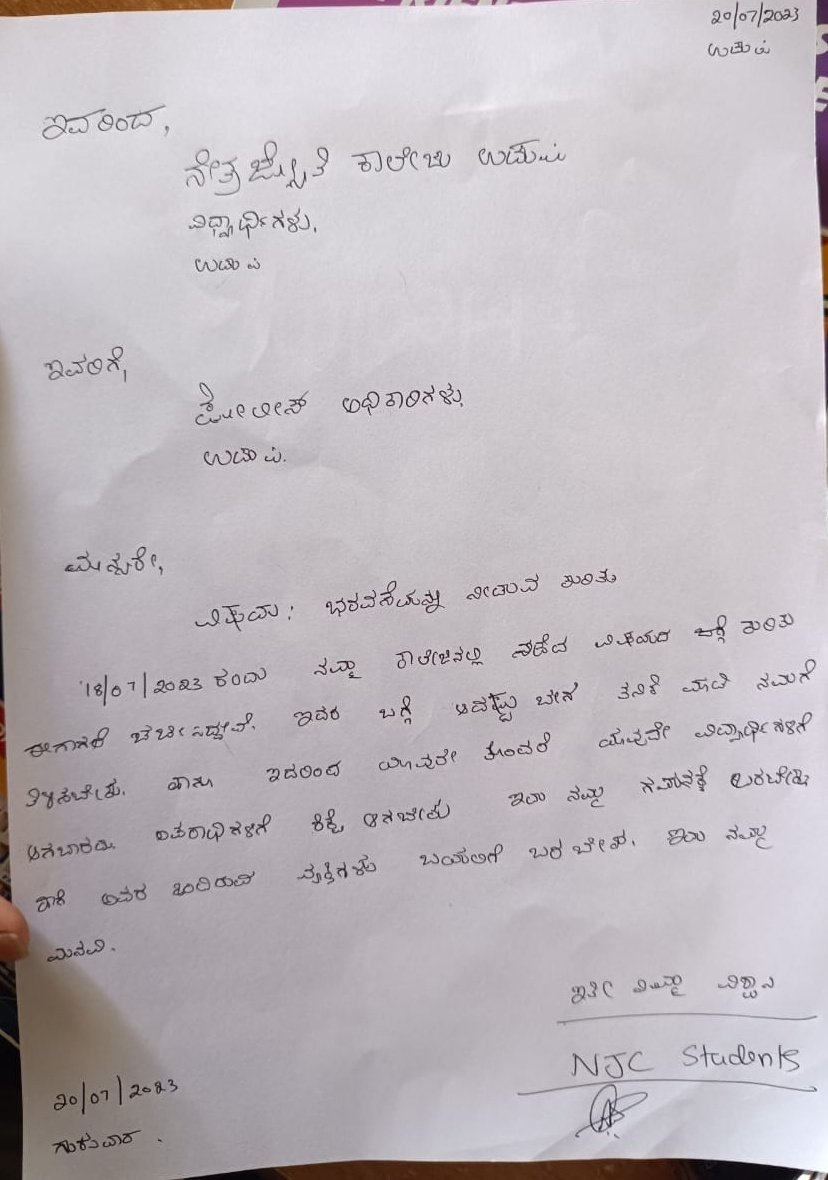 20/07/2023
ಉಡುಪಿ
ಇವರಿಂದ,
ನೇತ್ರ ಜ್ಯೋತಿ ಕಾಲೇಜು ಉಡುಪಿ
ವಿಧ್ಯಾರ್ಥಿಗಳು,
ಉಡುಪಿ
ಇವರಿಗೆ,
ಪೋಲೀಸ್ ಅಧಿಕಾರಿಗಳು,
ಉಡುಪಿ.
ಮಾನ್ಯರೇ,
ವಿಷಯ: ಭರವಸೆಯನ್ನು ನೀಡುವ ಕುರಿತು
18/07/2023 ರಂದು ನಮ್ಮ ಕಾಲೇಜಿನಲ್ಲಿ ನಡೆದ ವಿಷಯದ ಬಗ್ಗೆ ಕುರಿತು
ಈಗಾಗಲೆ ಇದರ ಬಗ್ಗೆ ಆದಷ್ಟು ಬೇಗ ತನಿಕೆ ಮಾಡಿ ನಮಗೆ
ತಿಳಿಸಬೇಕು. ಹಾಗು ಇದರಿಂದ ಯಾವುದೇ ತೊಂದರೆ ಯಾವುದೇ ವಿದ್ಯಾರ್ಥಿಗಳಿಗೆ
ಆಗಬಾರದು. ಶಿಕ್ಷೆ ಆಗಬೇಕು ಇದು ನಮ್ಮ ಗಮನಕ್ಕೆ ಬರಬೇಕು
ಹಾಗೆ ಅವರ ಹಿಂದಿರುವ ವ್ಯಕ್ತಿಗಳು ಬಯಲಿಗೆ ಬರಬೇಕು. ಇದು ನಮ್ಮ
ಮನವಿ.
ಇತೀ ನಿಮ್ಮ ವಿಶ್ವಾಸಿ
NJC Students
20/07/2023
ಗುರುವಾರ.